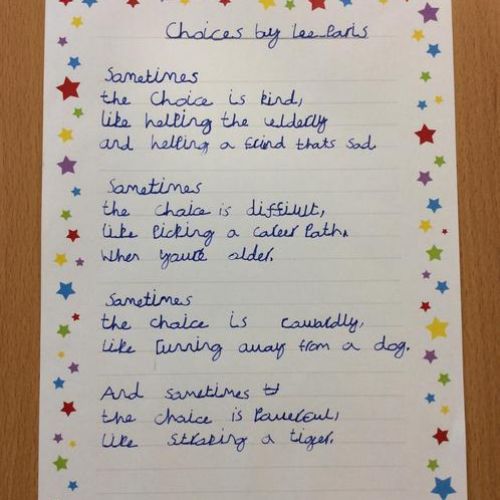 Choices by Lee Paris
Sometimes
the choice is kind,
like helping the elderly
and helping a frind thats sad.
Sometimes
the choice is difficult,
like picking a career path.
when you're older.
Sometimes
the choice is cowardly,
like running away from a dog.
And sometimes
the choice is powerful,
like stroking a tiger.